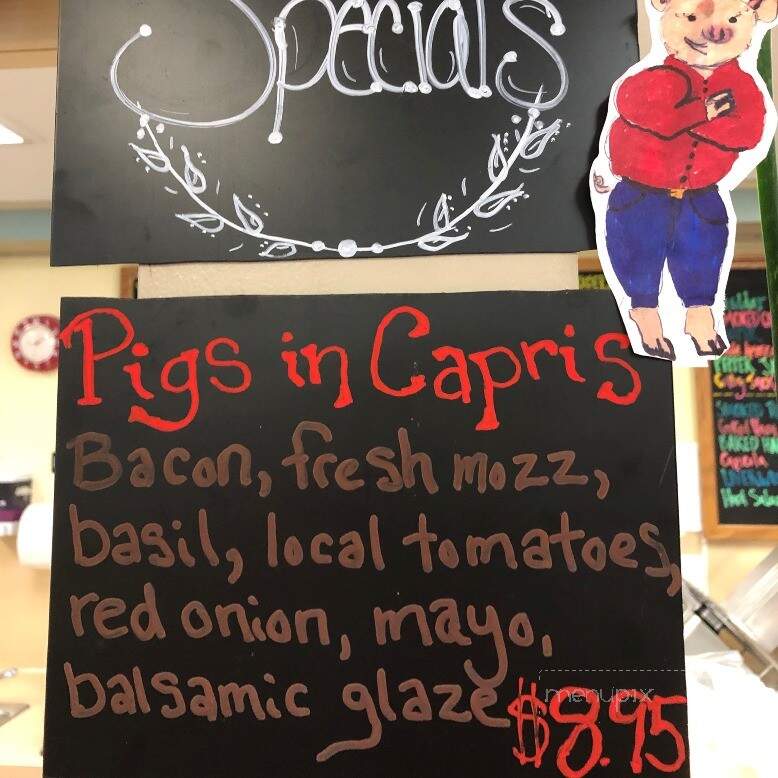 Specials
Pigs in Capris
Bacon, fresh mozz,
basil, local tomatoes,
red onion, mayo,
balsamic glaze
$8.95
menupix